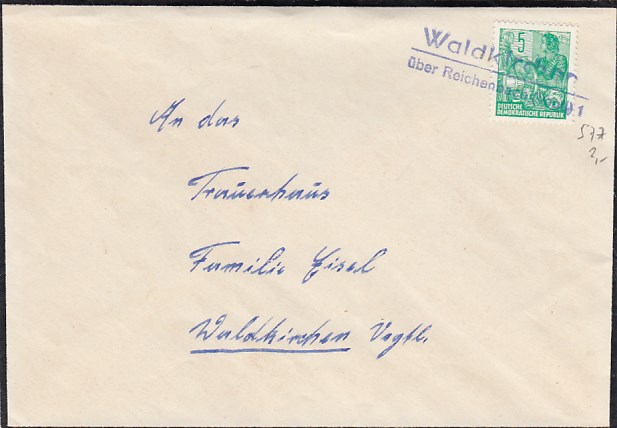 Waldkirchen
über Reichenbach (Vogtl)
5
DEUTSCHE
DEMOKRATISCHE REPUBLIK
577
2,-
An das
Trauerhaus
Familie Eisel
Waldkirchen Vogtl.